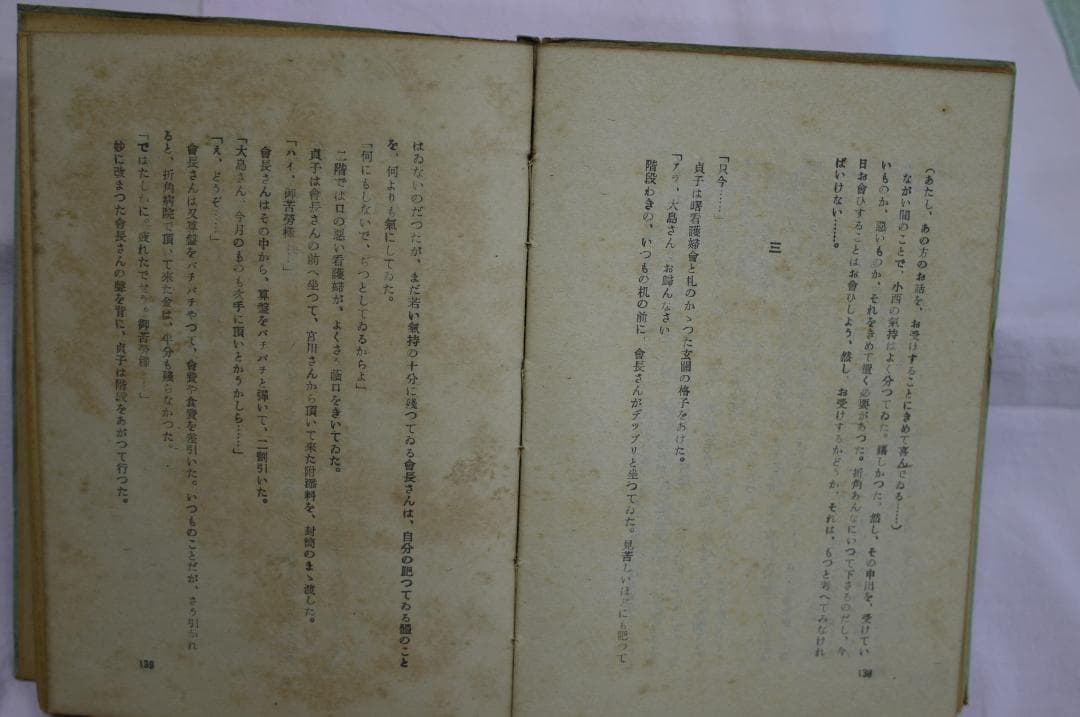 （あたし、あの方のお話を、お受けすることにきめて喜んでゐる……）
ながい間のことで、小西の氣持はよく分つてゐた。嬉しかつた。然し、その申出を、受けてい
いものか、惡いものか、それをきめて置く必要があつた。折角あんなにいつて下さるのだし、今
日お會ひすることはお會ひしよう、然し、お受けするかどうか、それは、もつと考へてみなけれ
ばいけない……。
三
「只今……」
貞子は曙看護婦會と札のかゝつた玄關の格子をあけた。
「アラ、大島さん お歸んなさい
階段わきの、いつもの机の前に、會長さんがデツプリと坐つてゐた。見苦しいほどにも肥つて
138
はゐないのだつたが、まだ若い氣持の十分に殘つてゐる會長さんは、自分の肥つてゐる體のこと
を、何よりも氣にしてゐた。
「何にもしないで、ぢつとしてゐるからよ」
二階では口の惡い看護婦が、よくさう蔭口をきいてゐた。
貞子は會長さんの前へ坐つて、宮川さんから頂いて來た附添料を、封筒のまゝ渡した。
「ハイ、御苦勞樣……」
會長さんはその中から、算盤をパチパチと彈いて、二割引いた。
「大島さん、今月のものも次手に頂いとかうかしら……」
「え、どうぞ……」
會長さんは又算盤をパチパチやつて、會費や食費を差引いた。いつものことだが、さう引かれ
ると、折角病院で頂いて來た金は、半分も殘らなかつた。
「ではたしかに。疲れたでせう。御苦勞樣……」
妙に改まつた會長さんの聲を背に、貞子は階段をあがつて行つた。
139